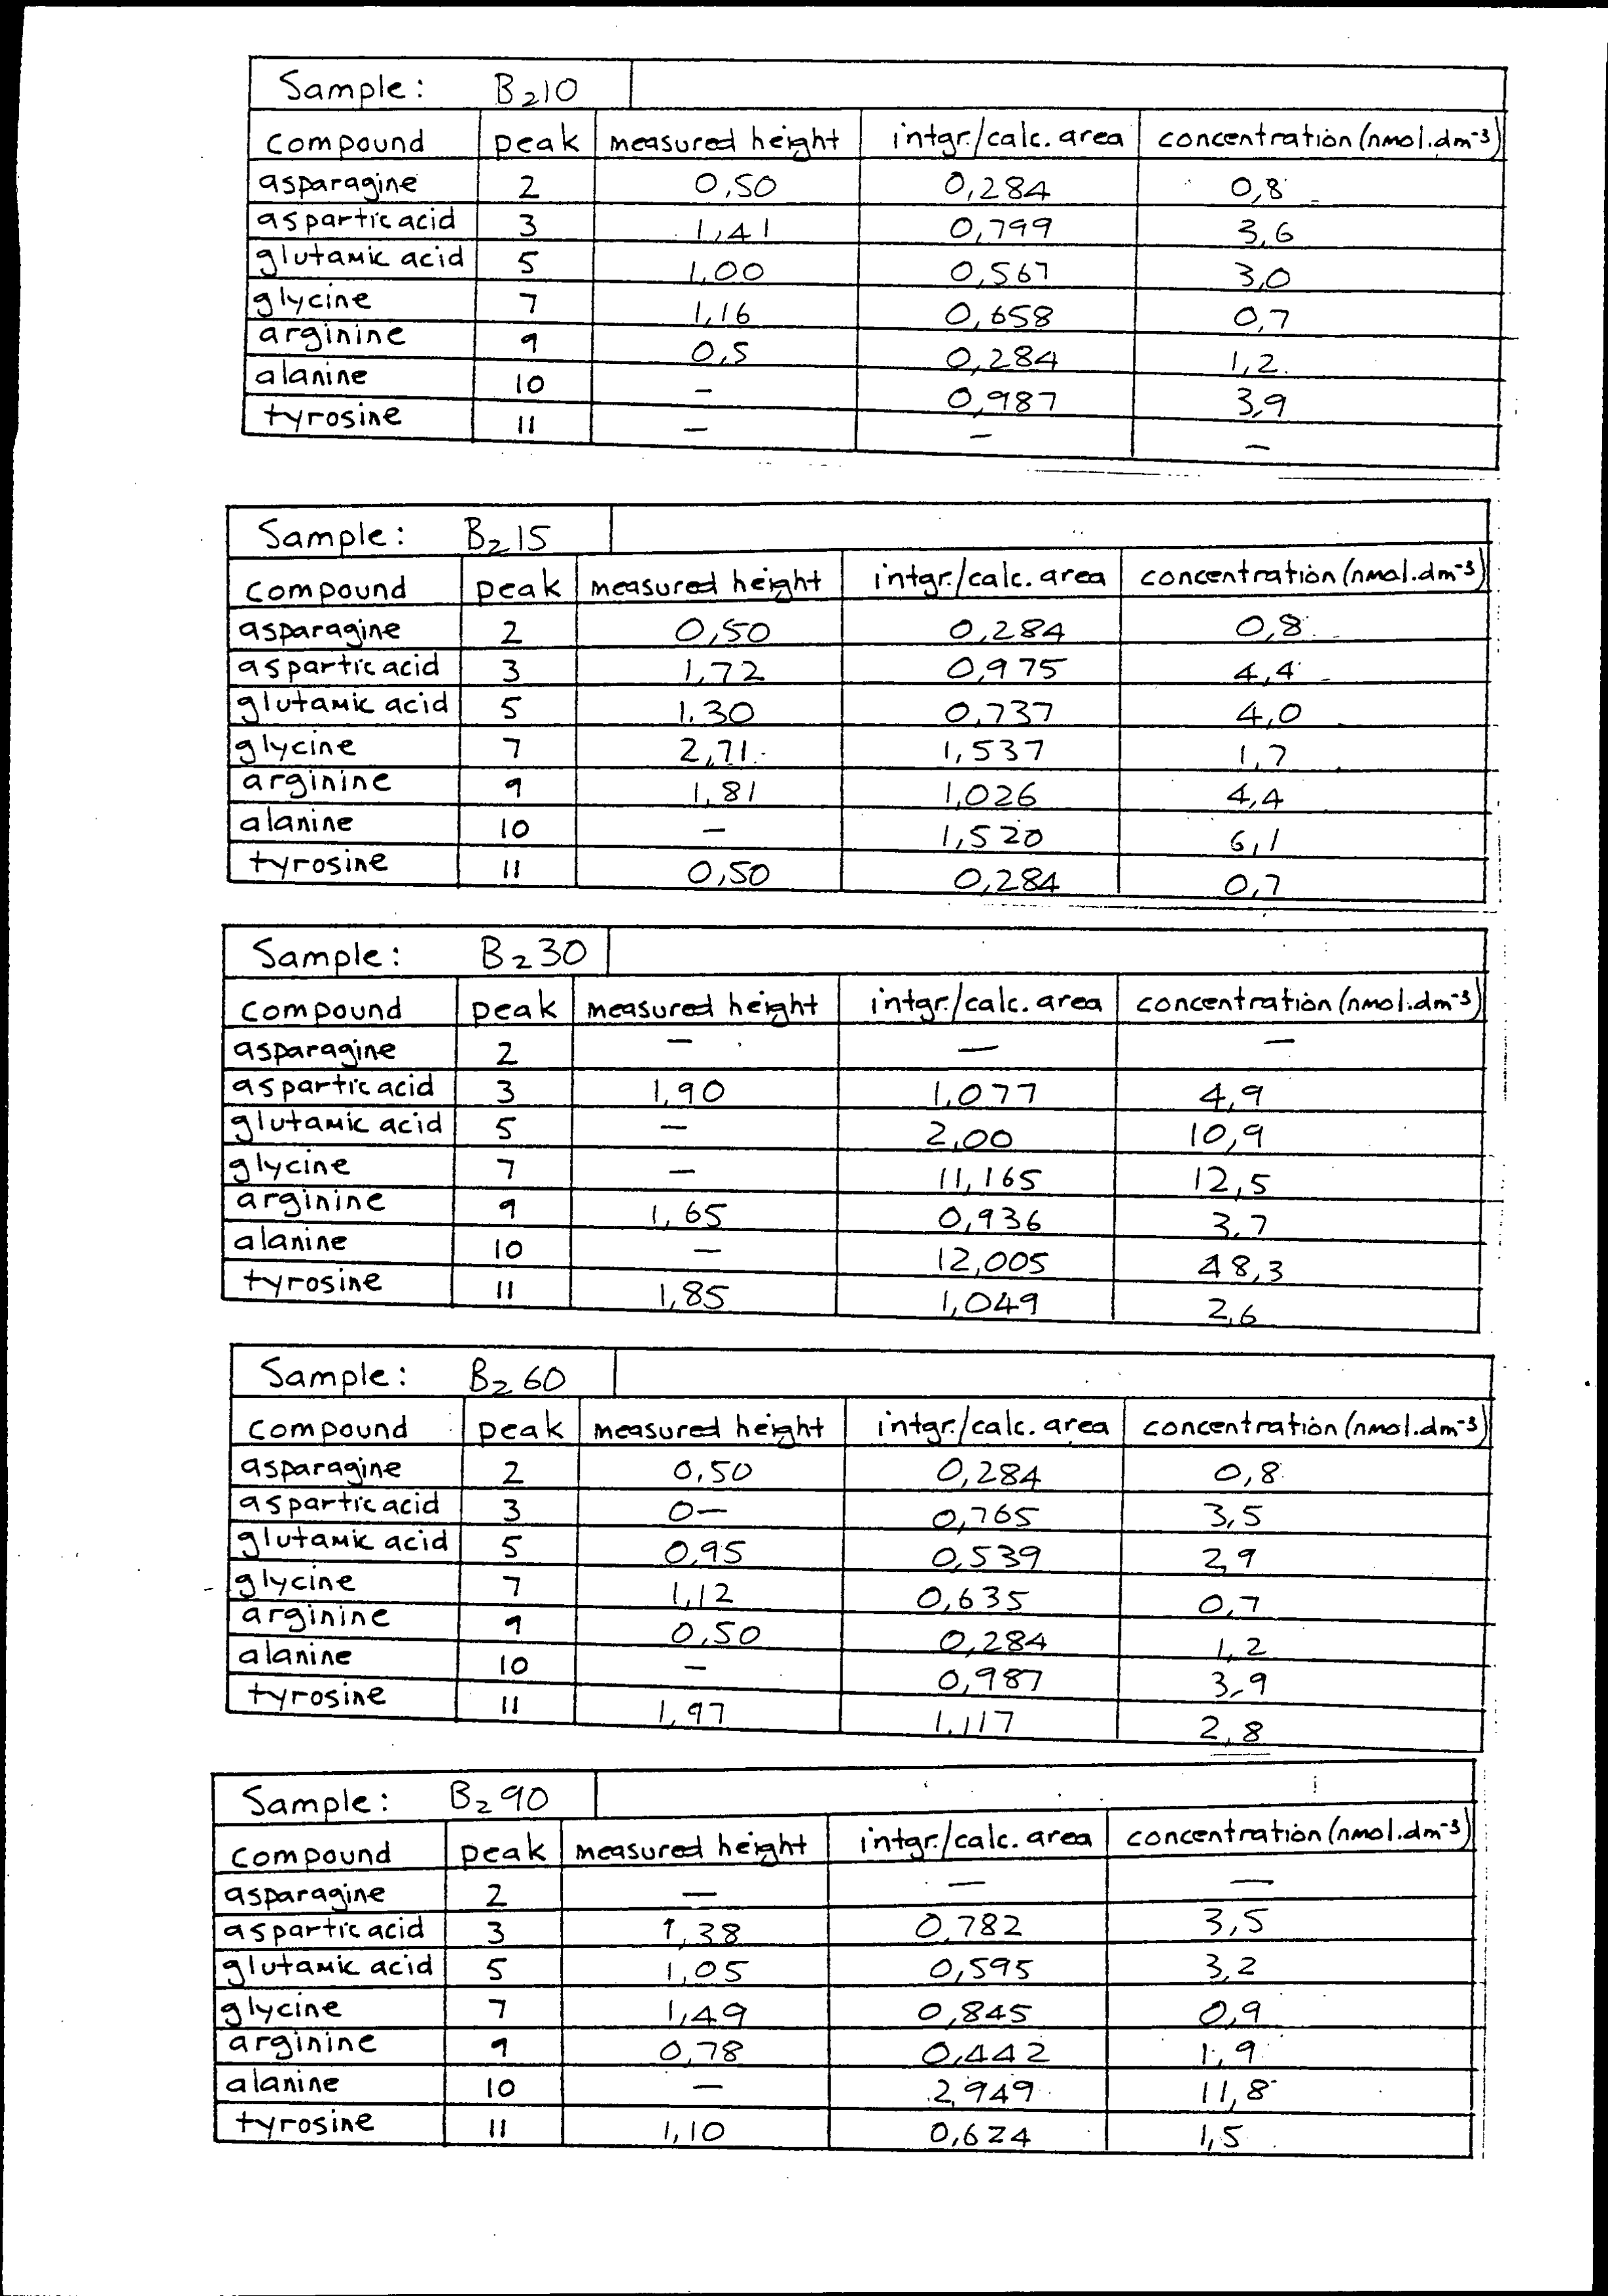 Sample: B₂10
compound peak measured height intgr./calc. area concentration (nmol.dm⁻³)
asparagine 2 0,50 0,284 0,8
aspartic acid 3 1,41 0,799 3,6
glutamic acid 5 1,00 0,567 3,0
glycine 7 1,16 0,658 0,7
arginine 9 0,5 0,284 1,2
alanine 10 – 0,987 3,9
tyrosine 11 – – –
Sample: B₂15
compound peak measured height intgr./calc. area concentration (nmol.dm⁻³)
asparagine 2 0,50 0,284 0,8
aspartic acid 3 1,72 0,975 4,4
glutamic acid 5 1,30 0,737 4,0
glycine 7 2,71 1,537 1,7
arginine 9 1,81 1,026 4,4
alanine 10 – 1,520 6,1
tyrosine 11 0,50 0,284 0,7
Sample: B₂30
compound peak measured height intgr./calc. area concentration (nmol.dm⁻³)
asparagine 2 – – –
aspartic acid 3 1,90 1,077 4,9
glutamic acid 5 – 2,00 10,9
glycine 7 – 11,165 12,5
arginine 9 1,65 0,936 3,7
alanine 10 – 12,005 48,3
tyrosine 11 1,85 1,049 2,6
Sample: B₂60
compound peak measured height intgr./calc. area concentration (nmol.dm⁻³)
asparagine 2 0,50 0,284 0,8
aspartic acid 3 0– 0,765 3,5
glutamic acid 5 0,95 0,539 2,9
glycine 7 1,12 0,635 0,7
arginine 9 0,50 0,284 1,2
alanine 10 – 0,987 3,9
tyrosine 11 1,97 1,117 2,8
Sample: B₂90
compound peak measured height intgr./calc. area concentration (nmol.dm⁻³)
asparagine 2 – – –
aspartic acid 3 1,38 0,782 3,5
glutamic acid 5 1,05 0,595 3,2
glycine 7 1,49 0,845 0,9
arginine 9 0,78 0,442 1,9
alanine 10 – 2,949 11,8
tyrosine 11 1,10 0,624 1,5